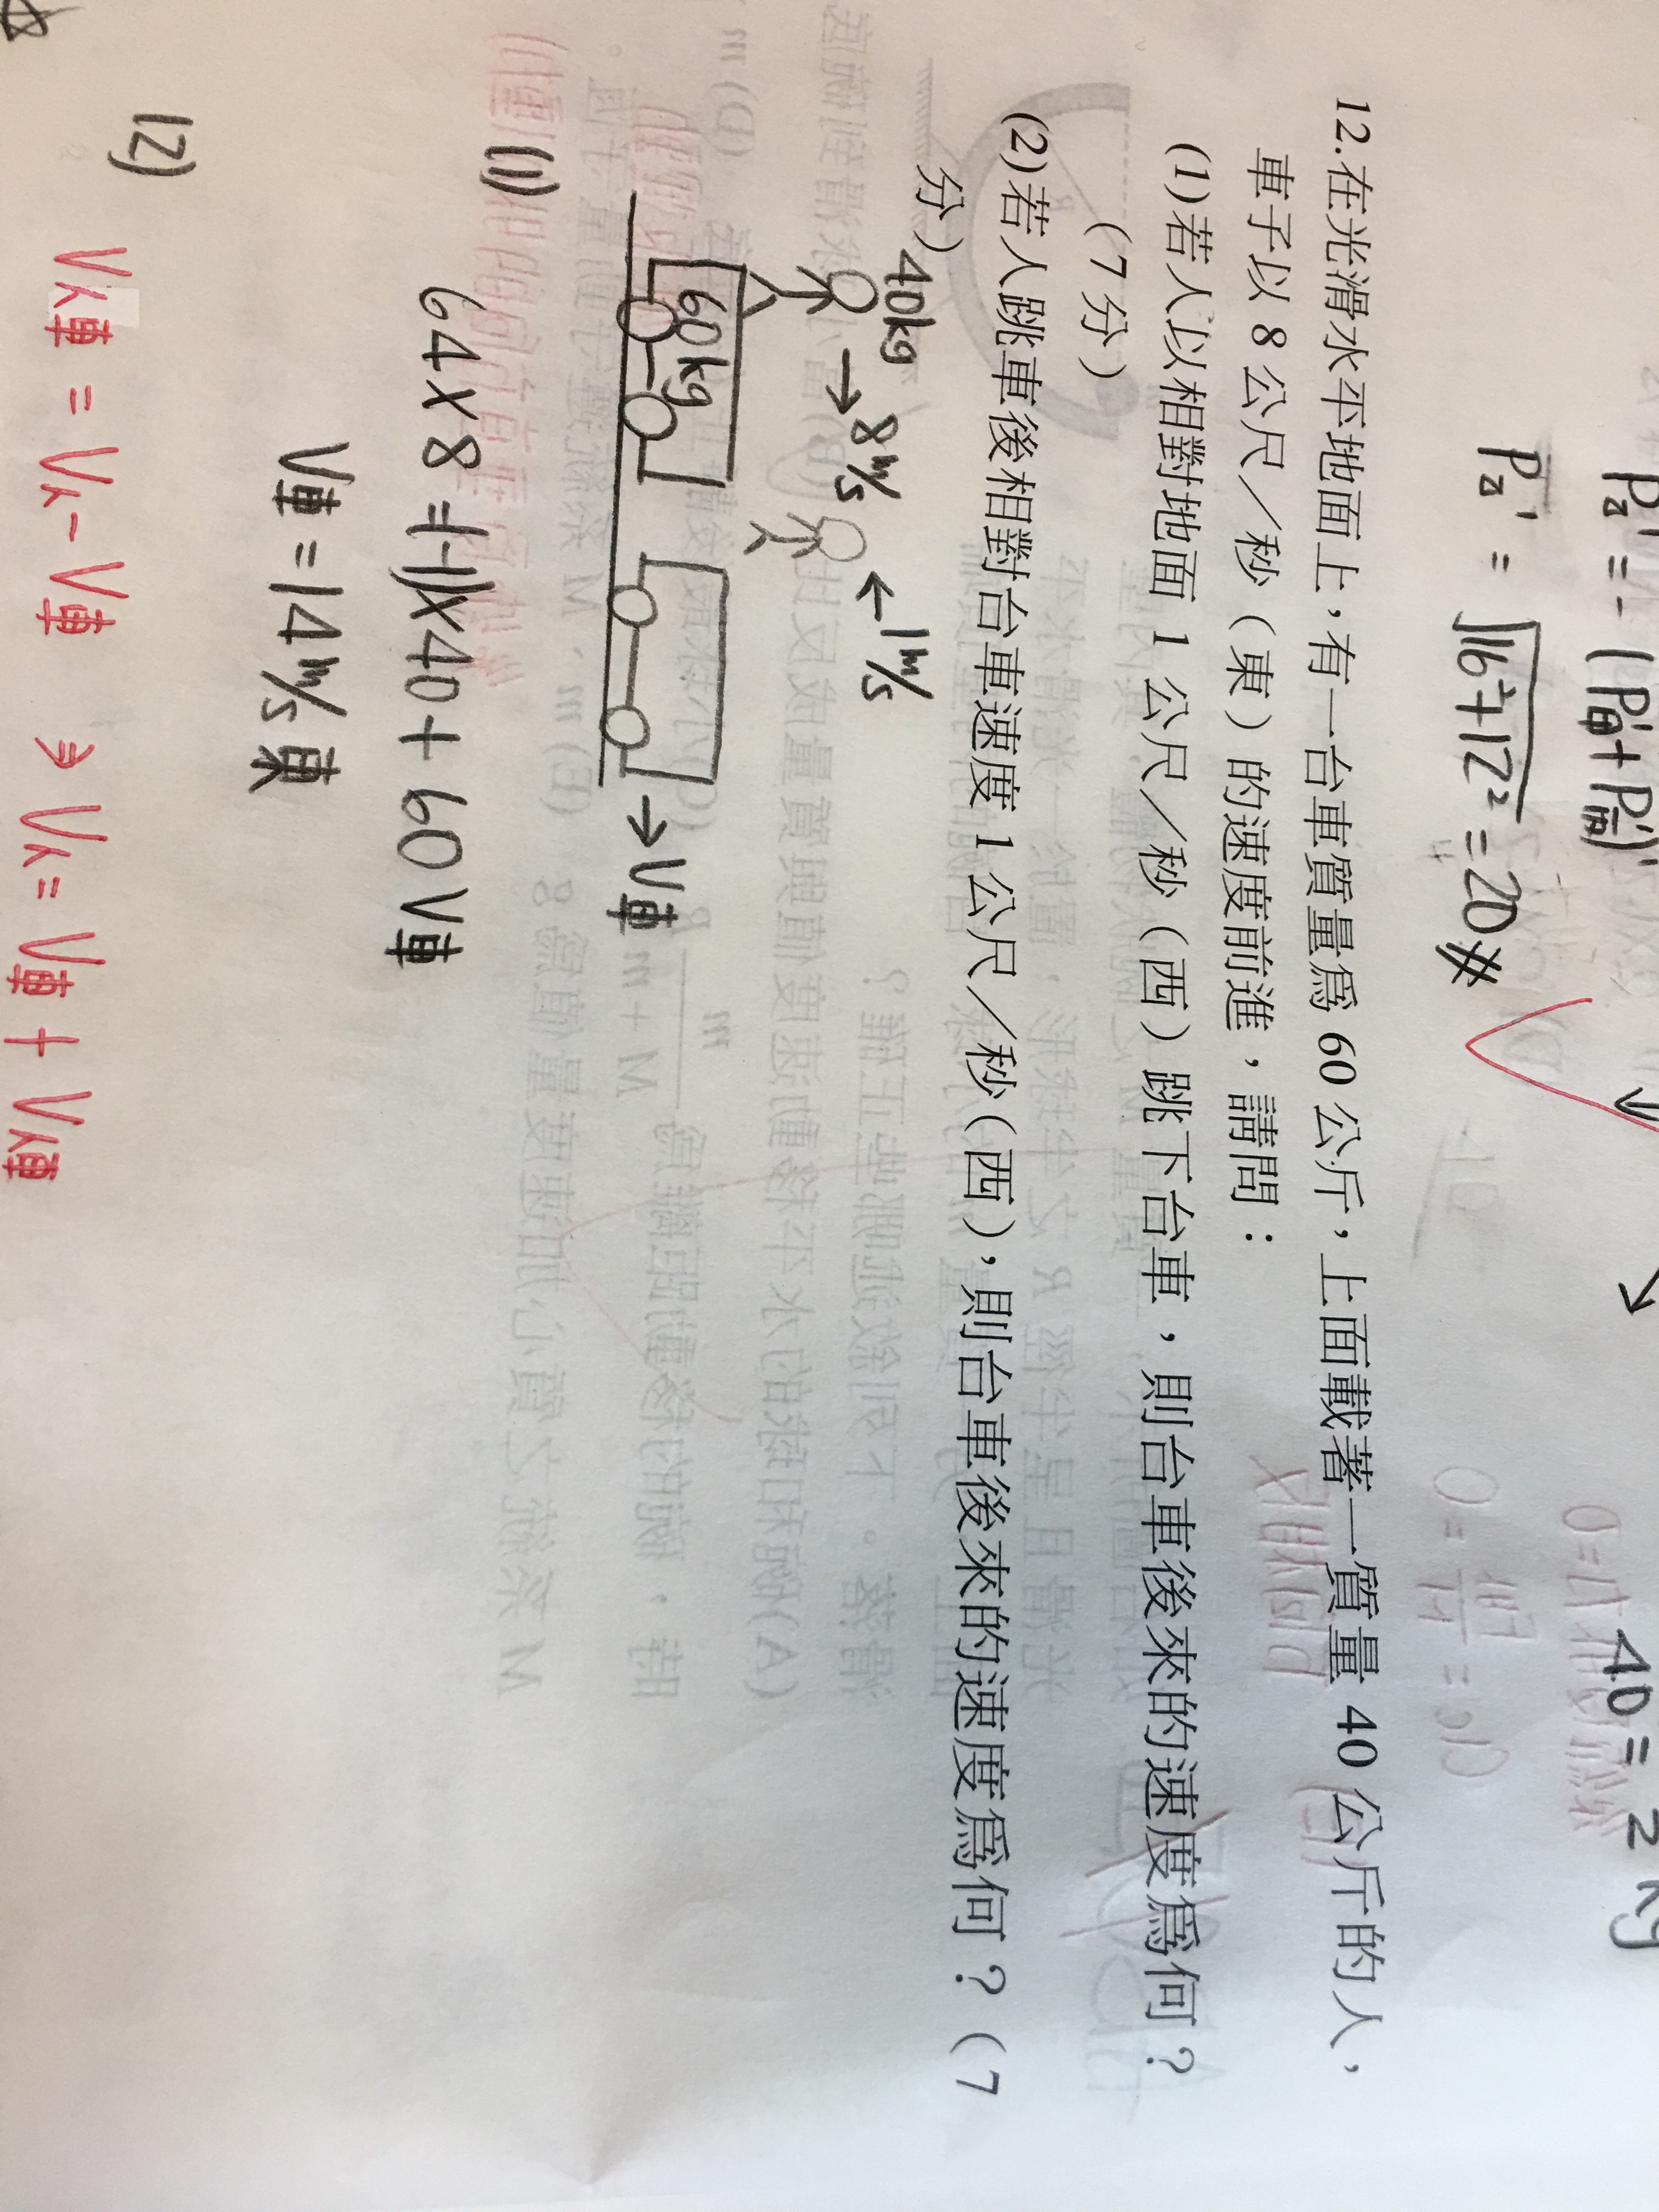 P乙' = - (P甲' + P丙')'
P乙' = √16²+12² = 20
40 = 2 kg
12.在光滑水平地面上，有一台車質量爲 60 公斤，上面載著一質量 40 公斤的人，
車子以 8 公尺／秒（東）的速度前進，請問：
(1)若人以相對地面 1 公尺／秒（西）跳下台車，則台車後來的速度爲何？
（7 分）
(2)若人跳車後相對台車速度 1 公尺／秒（西），則台車後來的速度爲何？（7
分）
40kg → 8 m/s ← 1 m/s
60kg → V車
(1)
64 × 8 = (-1) × 40 + 60 V車
V車 = 14 m/s 東
(2)
V人車 = V人 - V車 ⇒ V人 = V車 + V人車